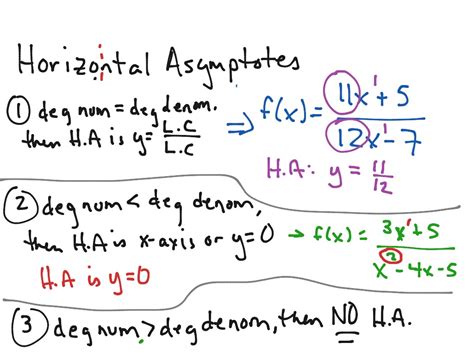 Horizontal Asymptotes
① deg num = deg denom.
then H.A is y = L.C / L.C
⇒ f(x) = 11x¹ + 5 / 12x¹ - 7
H.A: y = 11/12
② deg num < deg denom,
then H.A is x-axis or y=0 → f(x) = 3x¹+5 / x² - 4x - 5
H.A is y=0
③ deg num > deg denom, then NO H.A.